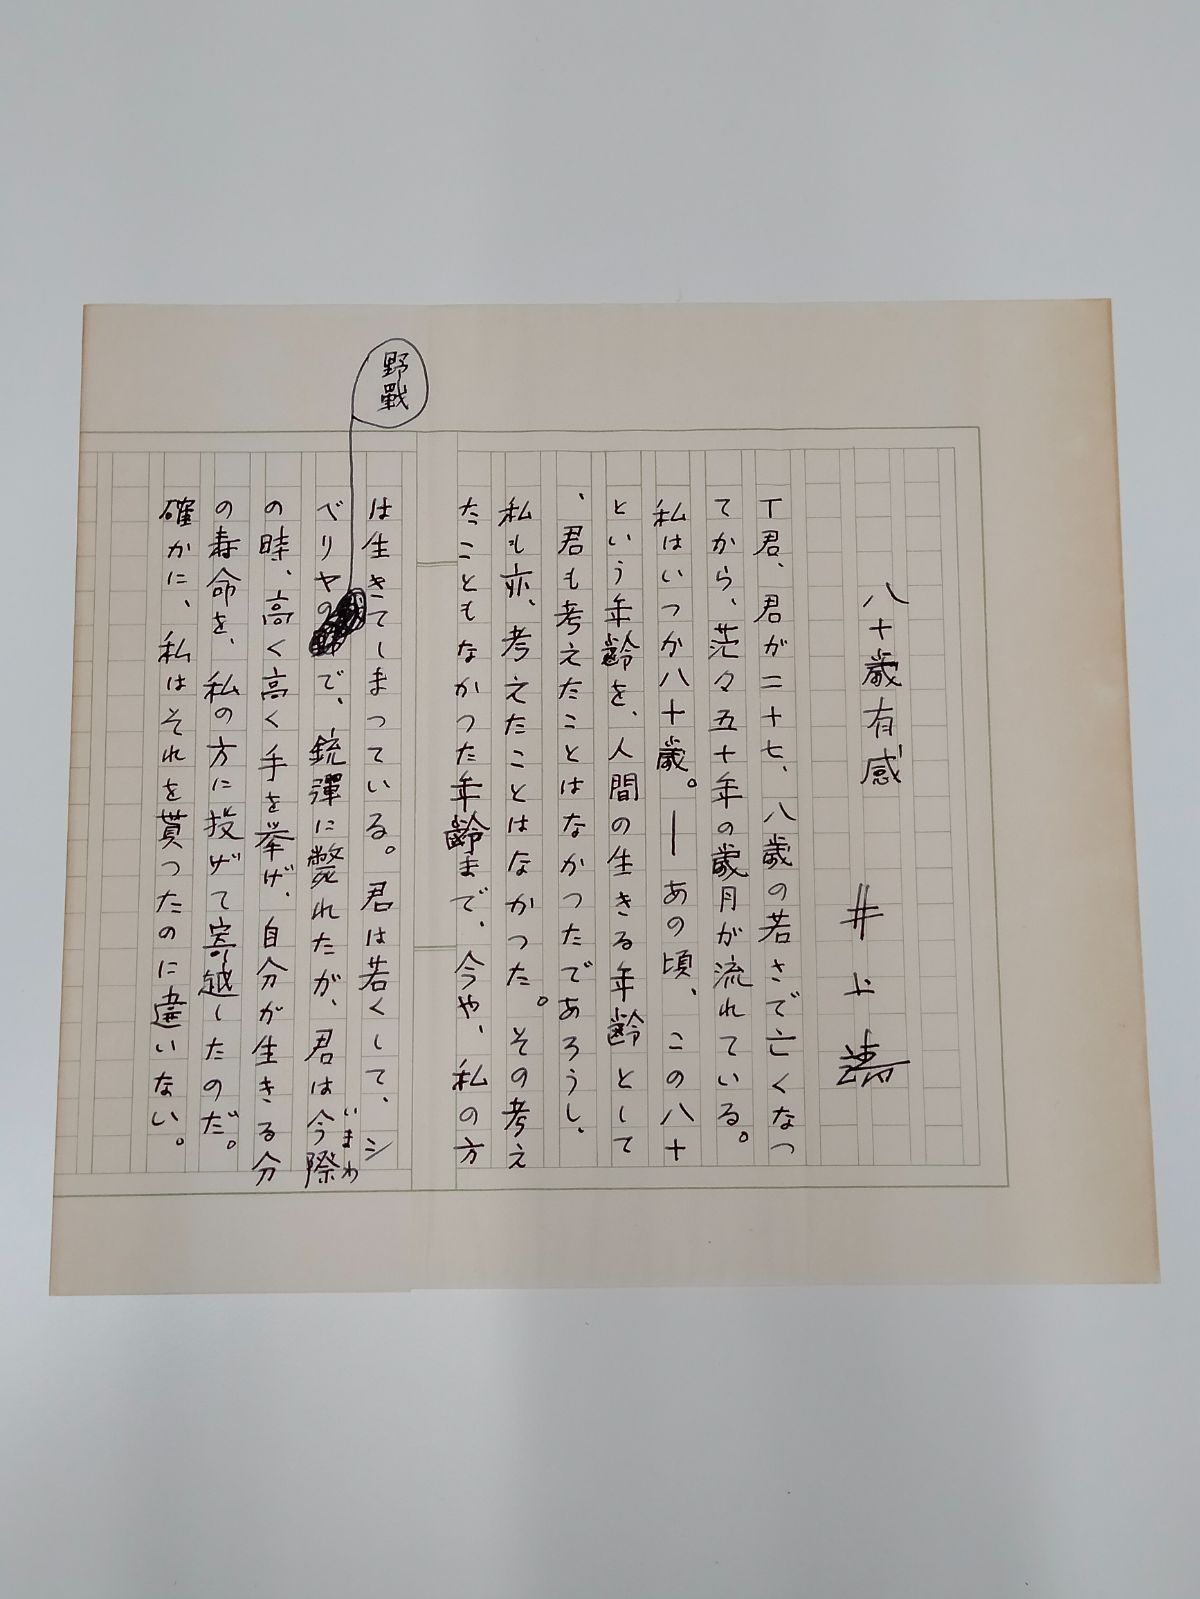 八十歳有感
井上靖
T君、君が二十七、八歳の若さで亡くなつ
てから、茫々五十年の歳月が流れている。
私はいつか八十歳。―あの頃、この八十
という年齢を、人間の生きる年齢として
、君も考えたことはなかつたであろうし、
私も亦、考えたことはなかつた。その考え
たこともなかつた年齢まで、今や、私の方
は生きてしまつている。君は若くして、シ
ベリヤの野戰で、銃彈に斃れたが、君は今際
いまわ
の時、高く高く手を挙げ、自分が生きる分
の寿命を、私の方に投げて寄越したのだ。
確かに、私はそれを貰つたのに違いない。